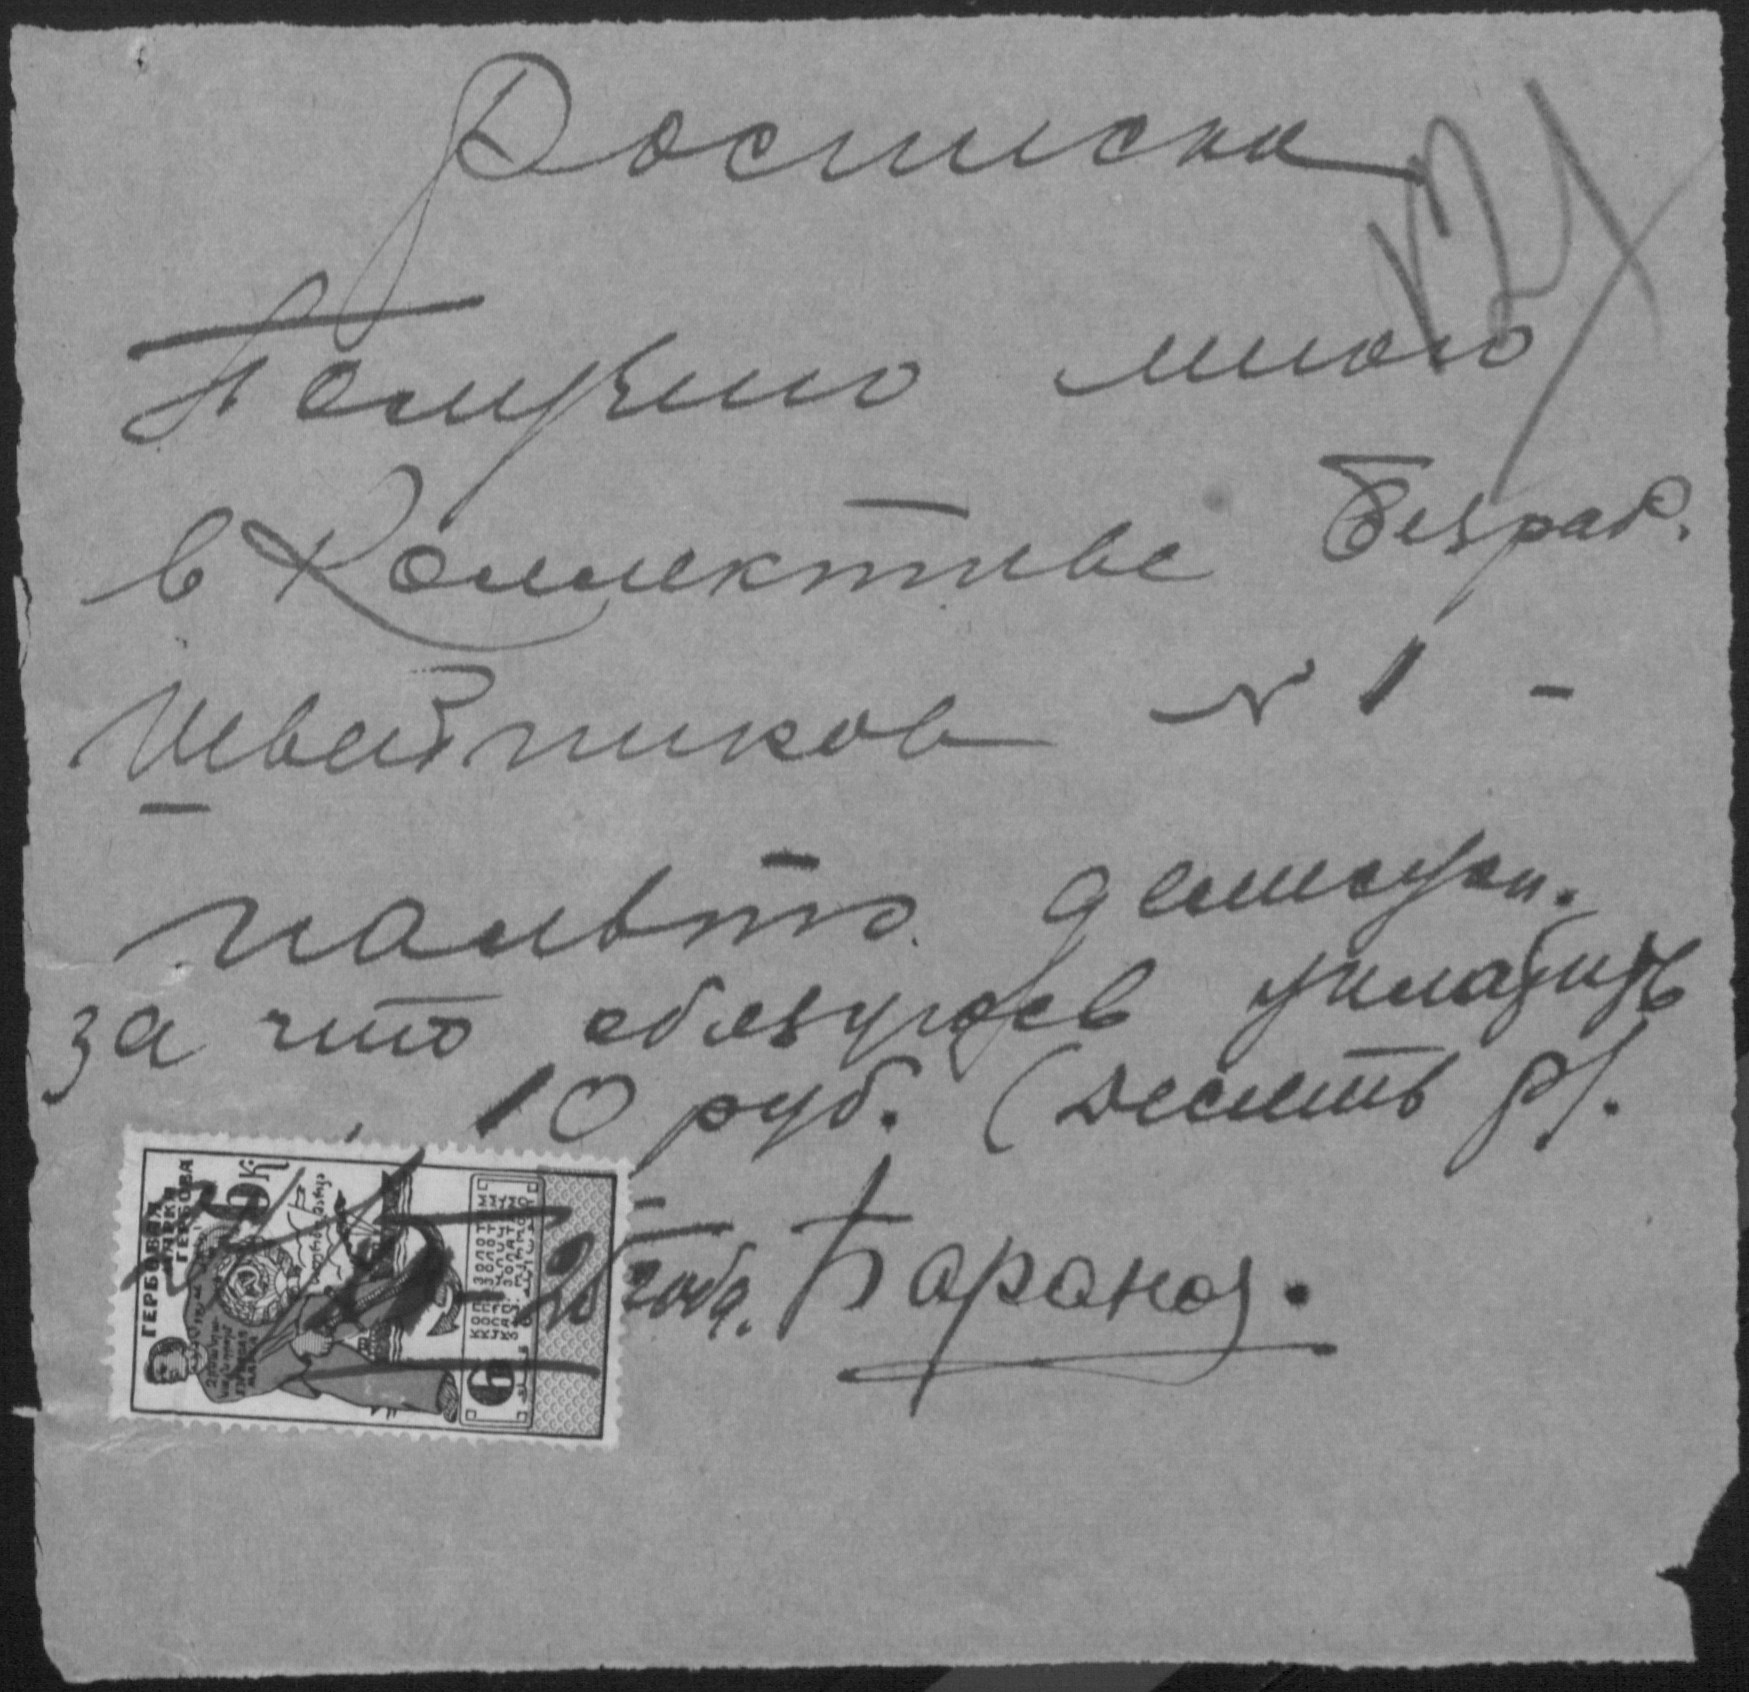 Росписка
121
Получено мною
в Коллективе Безраб.
Швейников № 1 -
пальто демисез.
за что обязуюсь уплатить
10 руб. (Десять р/.
26 года. Баранов.
ГЕРБОВАЯ
МАРКА
ГЕРБОВА
6 К
6